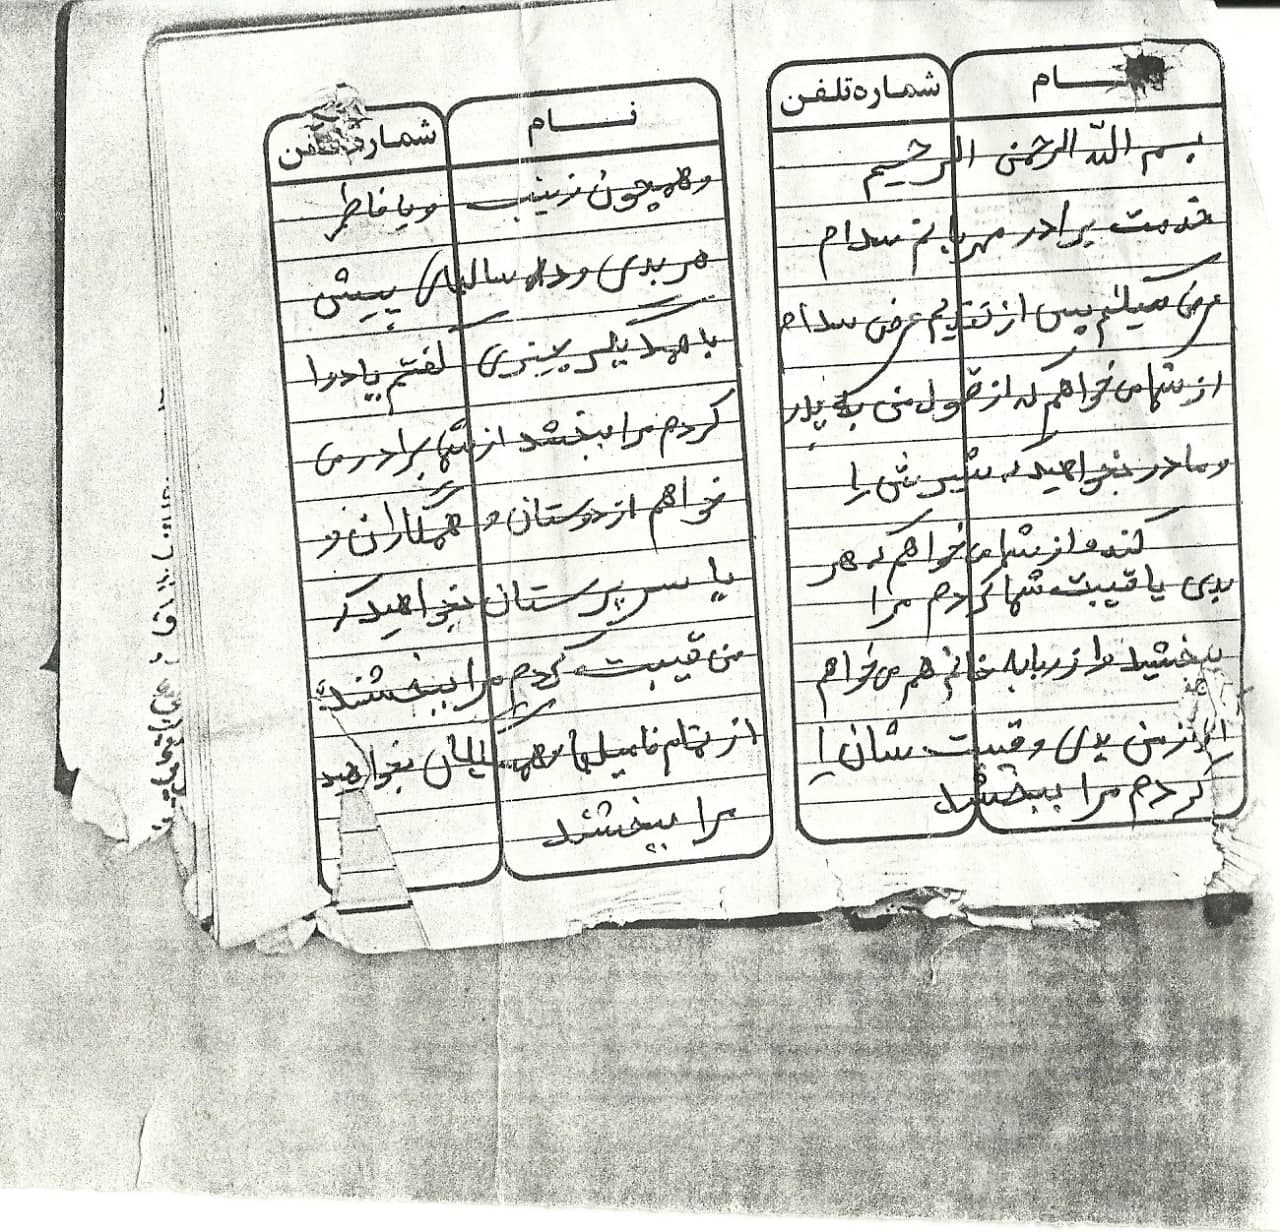 نام
شماره تلفن
بسم الله الرحمن الرحیم
خدمت برادر مهربانم سلام
عرض میکنم پس از تقدیم عرض سلام
از شما می خواهم که از قول من به پدر
و مادر بخواهید که شیرش را
کند و از شما می خواهم که هر
بدی یا قیبت شما کردم مرا
ببخشید و از ربابه خانم هم می خواهم
اگر از من بدی و قیبت شان را
کردم مرا ببخشد
نام
شماره تلفن
و همچون زینب و یا فاطر
هر بدی و داه سالهای پیش
با همدیگر چیزی گفتم یا دعوا
کردم مرا ببخشد از شما برادر می
خواهم از دوستان و همکاران و
یا سرپرستان بخواهید که
من قیبت کردم مرا ببخشند
از تمام فامیلها و همسایگان بخواهید
مرا ببخشند